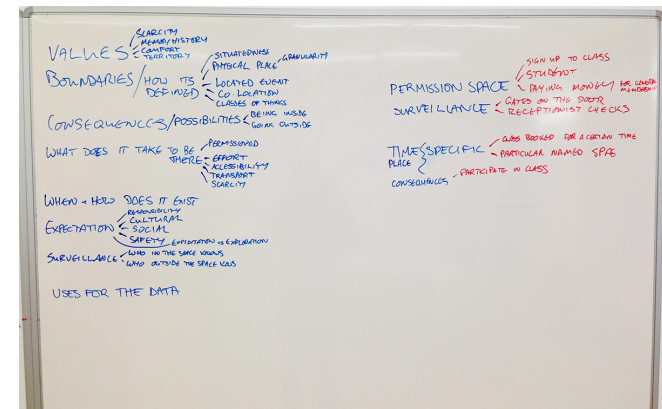 SCARCITY
MEMORY/HISTORY
VALUES
COMFORT
TERRITORY
SITUATEDNESS
PHYSICAL PLACE GRANULARITY
BOUNDARIES/HOW ITS DEFINED
LOCATED EVENT
CO-LOCATION
CLASSES OF THINGS
CONSEQUENCES/POSSIBILITIES
BEING INSIDE
GOING OUTSIDE
WHAT DOES IT TAKE TO BE THERE
PERMISSIONED
EFFORT
ACCESSIBILITY
TRANSPORT
SCARCITY
WHEN + HOW DOES IT EXIST
RESPONSIBILITY
EXPECTATION
CULTURAL
SOCIAL
SAFETY EXPLOITATION vs EXPLORATION
SURVEILLANCE
WHO IN THE SPACE KNOWS
WHO OUTSIDE THE SPACE
USES FOR THE DATA
PERMISSION SPACE
SIGN UP TO CLASS
STUDENT
PAYING MONEY FOR GENERAL MEMBERSHIP
SURVEILLANCE
GATES ON THE DOOR
RECEPTIONIST CHECKS
TIME SPECIFIC
PLACE
CLASS BOOKED FOR A CERTAIN TIME
PARTICULAR NAMED
CONSEQUENCES
PARTICIPATE IN CLASS